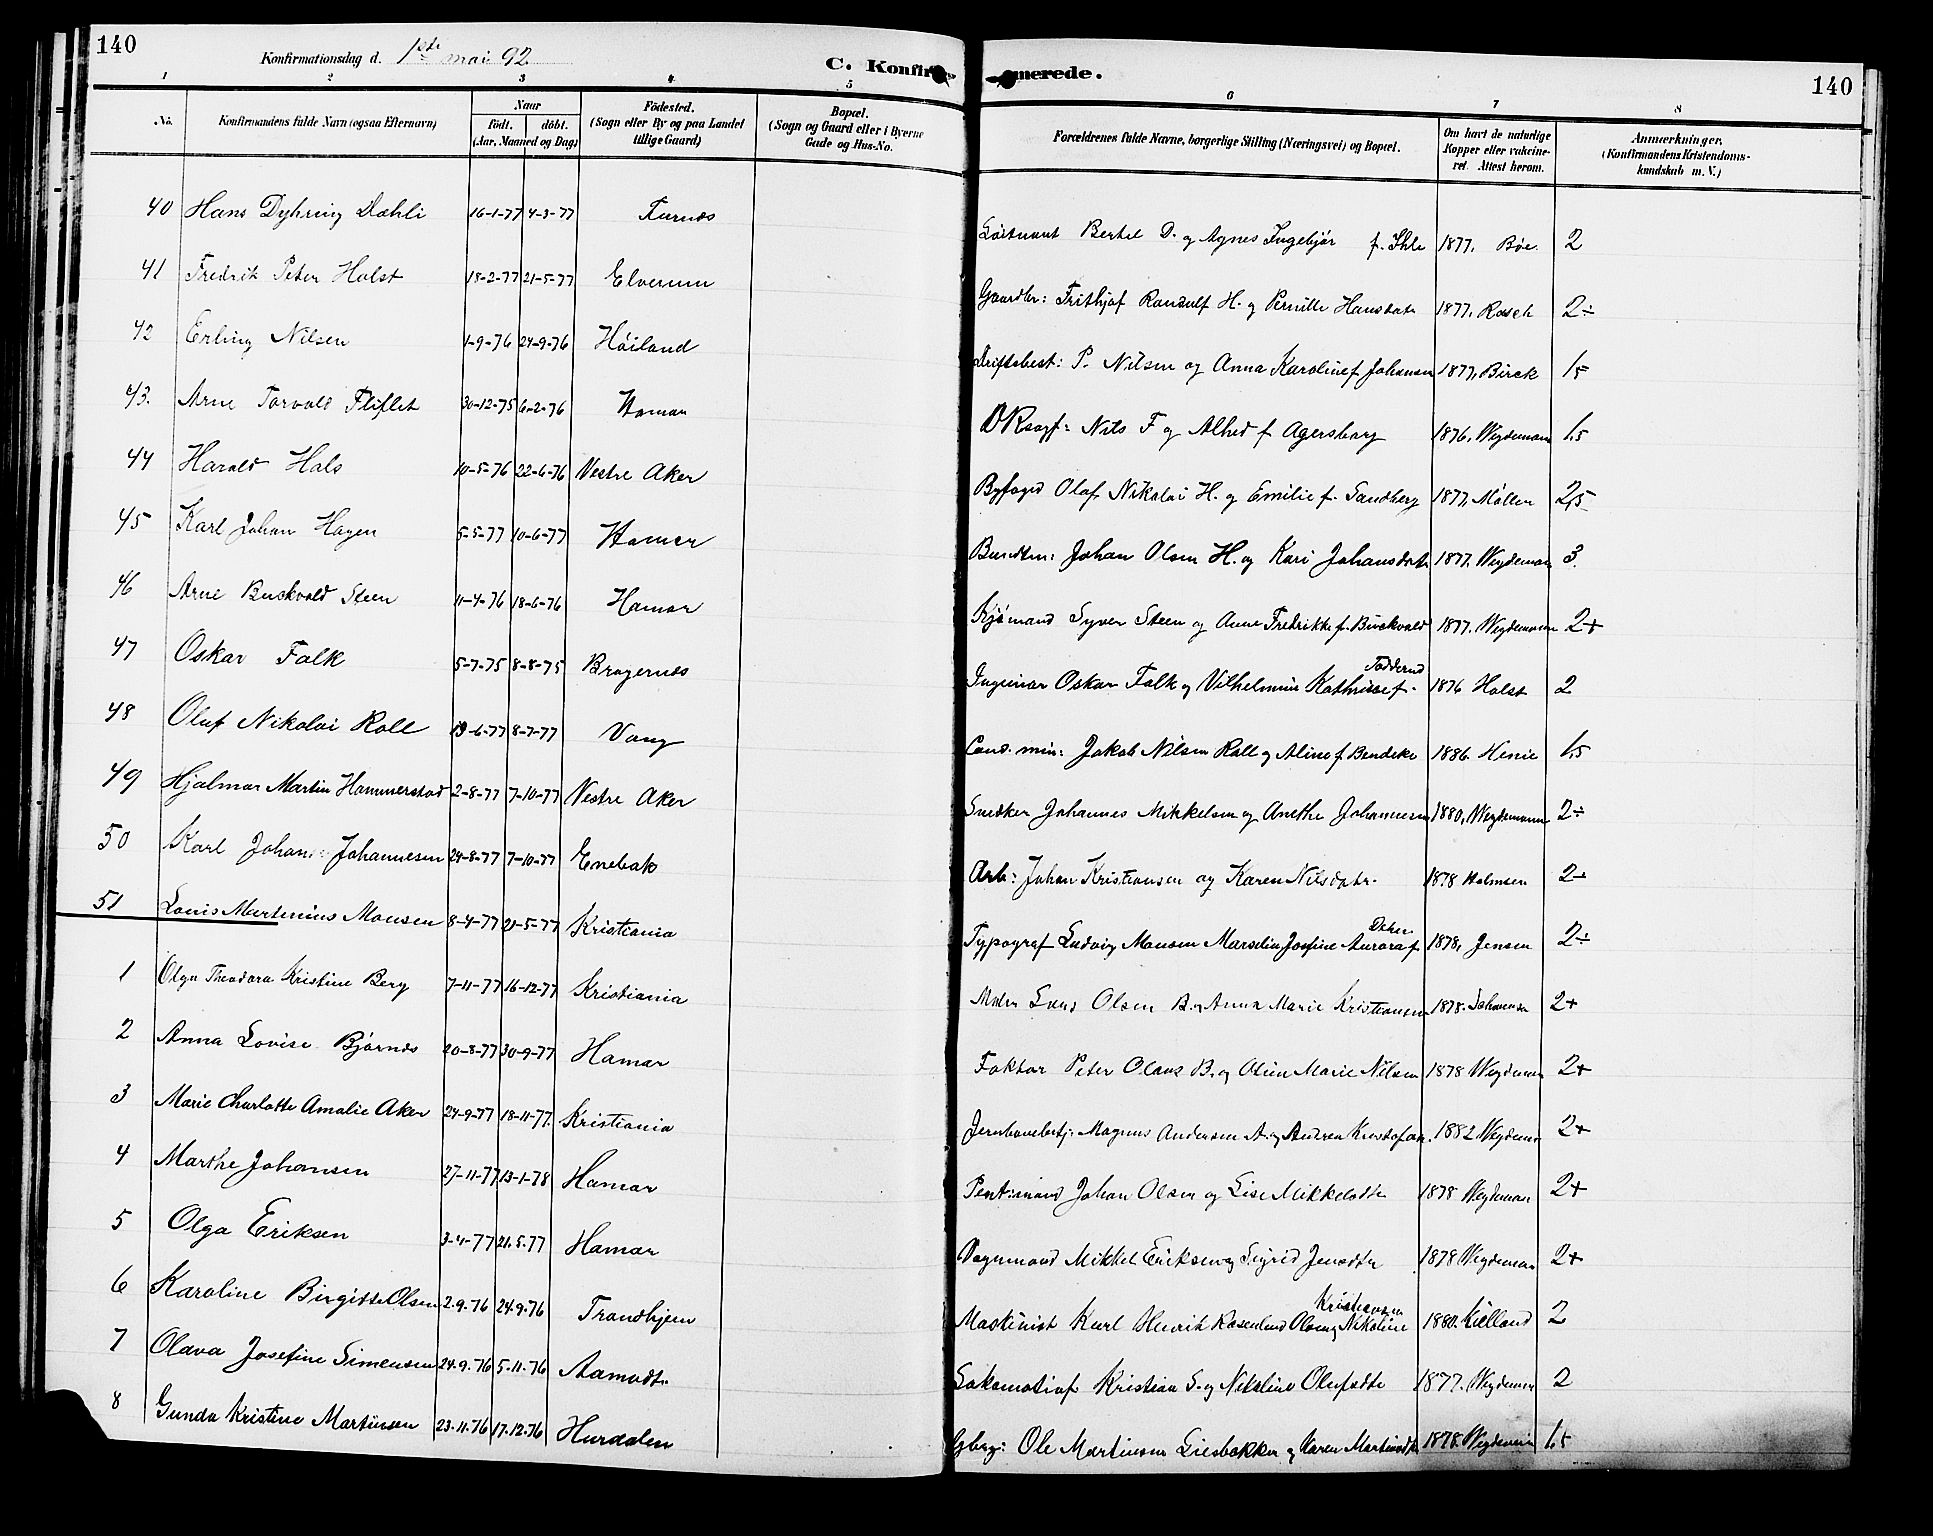 140
Konfirmationsdag d. 1ste mai 92
C. Konfirmerede.
140
1 2 3 4 5 6 7 8
No.
Konfirmandens fulde Navn (ogsaa Efternavn)
Naar
födt. döbt.
(Aar, Maaned og Dag)
Födested.
(Sogn eller By og paa Landet
tillige Gaard)
Bopæl.
(Sogn og Gaard eller i Byerne
Gade og Hus-No.
Forældrenes fulde Navne, borgerlige Stilling (Næringsvei) og Bopæl.
Om havt de naturlige
Kopper eller vakcine-
ret. Attest herom.
Anmærkninger,
(Konfirmandens Kristendoms-
kundskab m. V.)
40 Hans Dyhring Dæhli 16-1-77 4-3-77 Furnæs Löitnant Bertel D. og Agnes Ingebjør f. Ihle 1877, Böe 2
41 Fredrik Peter Holst 18-2-77 21-5-77 Elverum Gaardbr: Frithjof Randulf H. og Pernille Hansdatr 1877, Rasch 2÷
42 Erling Nilsen 1-9-76 24-9-76 Höiland Driftsbest: P. Nilsen og Anna Karoline f. Johansen 1877, Birck 1,5
43. Arne Torvald Fliflet 30-12-75 6-2-76 Hamar ORsagf: Nils F og Alhed f Agersborg 1876, Wegdemann 1,5
44 Harald Hals 10-5-76 22-6-76 Vestre Aker Byfoged Olaf Nikolai H. og Emilie f. Sandberg 1877, Möller 2,5
45 Karl Johan Hagen 5-5-77 10-6-77 Hamar Johan Olsen H. og Kari Johansdatr 1877. Wegdeman 3.
46 Arne Buckvold Steen 11-4-76 18-6-76 Hamar Kjömand Syver Steen og Anne Fredrikke f. Buckvold 1877. Wegdemann 2+
47 Oskar Falk 5-7-75 8-8-75 Bragernæs Ingeniør Oskar Falk og Vilhelmine Kathrine f. Todderud 1876 Holst 2
48 Oluf Nikolai Roll 13-6-77 8-7-77 Vang Cand. min: Jakob Nilsen Roll og Aline f. Bendeke 1886. Henie 1,5
49 Hjalmar Martin Hammerstad 2-8-77 7-10-77 Vestre Aker Snedker Johannes Mikkelsen og Anethe Johannesen 1880, Wegdemann 2÷
50 Karl Johan Johannesen 24-8-77 7-10-77 Enebak Arb: Johan Kristiansen og Karen Nilsdatr. 1878 Holmsen 2÷
51 Louis Martinius Monsen 8-4-77 21-5-77 Kristiania Typograf Ludvig Monsen Marselia Josfine Aurora f 1878, Jensen 2÷
1 Olga Theodora Kristine Berg 7-11-77 16-12-77 Kristiania Olsen B. og Anna Marie Kristiansen 1878. Johansen 2+
2 Anna Lovise Björnæs 20-8-77 30-9-77 Hamar Faktor Peter Olaus B. og Oline Marie Nilsen 1878 Wegdeman 2+
3 Marie Charlotte Amalie Aker 24-9-77 18-11-77. Kristiania Magnus Andersen A. og Andrea Kristofersen. 1882 Wegdeman 2+
4 Marthe Johansen 27-11-77 13-1-78 Hamar Johan Olsen og Lise Mikkelsdtr 1878 Wegdeman 2+
5 Olga Eriksen 3-4-77 21.5.77 Hamar Vognmand Mikkel Eriksen og Sigrid Jensdtr 1878 Wegdeman 2+
6 Karoline Birgitte Olsen 2.9.76 24.9.76 Trondhjem Maskinist Karl Henrik Rosenlund Olsen og Nikoline Kristiansen 1880. Kielland 2
7 Olava Josefine Simensen 24.9.76 5.11.76 Aamodt. Lokomotivf Kristian S. og Nikoline Olufsdtr 1877. Wegdeman 2
8 Gunda Kristine Martinsen 23.11.76 17.12.76 Hurdalen Ole Martinsen Liesbakken og Karen Martinsdtr 1878. Wegdeman 1,5